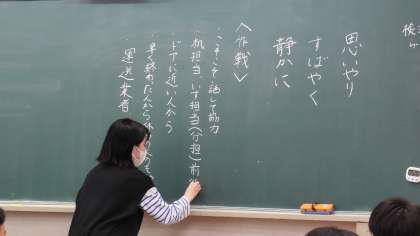 思いやり
すばやく
静かに
〈作戦〉
・こそこそ話して協力
・机担当、いす担当(分担)前後
・ドアに近い人から
・早く終わった人から
・運送業者